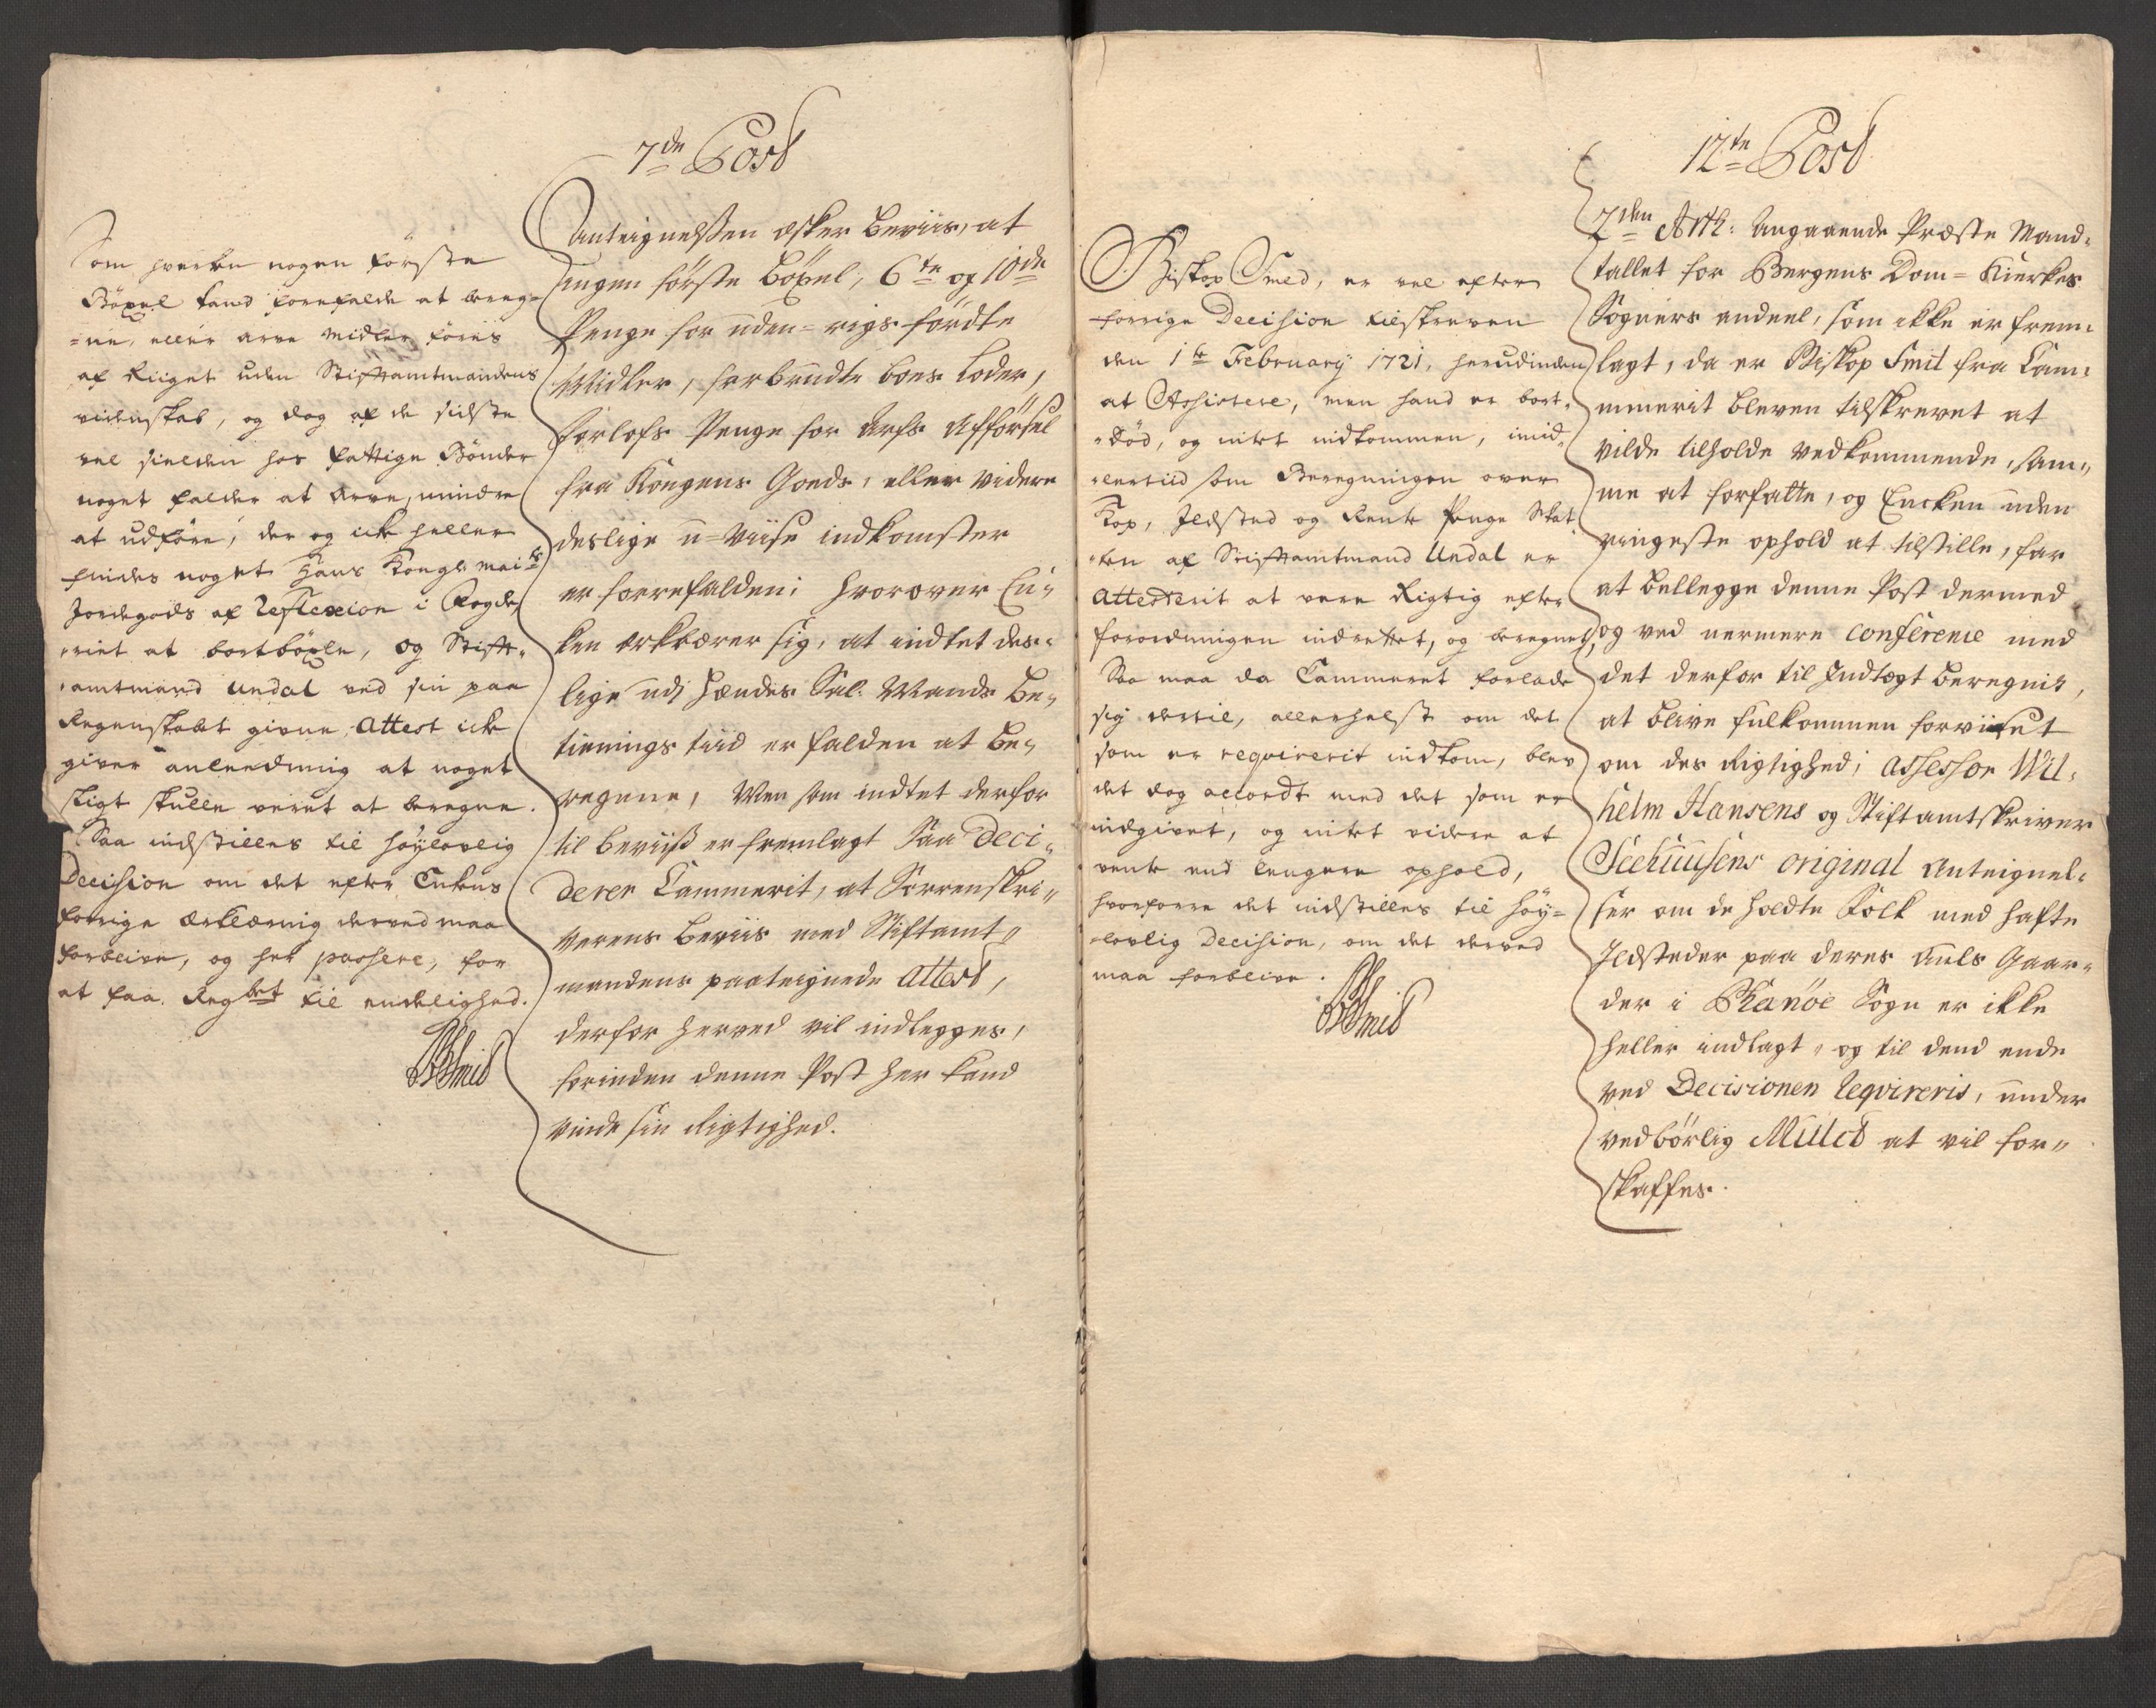 7de Post
Som hverken nogen förste
Böxel kand forefalde at bereg-
=ne, eller arve Midler föris
af Riiget uden Stiftamtmandens
videnskab, og dog af de sidste
vel sielden hos fattige Bönder
noget falder at arve, mindre
at udföre, der og icke heller
findes noget Hans Kongl. Maits
Jordegods af Reflexion i Fogde-
-riet at bortböxle, og Stift-
-amtmand Undal ved sin paa
Regenskabet givne Attest icke
giver anleedning at noget
sligt skulle veret at beregne.
Saa indstilles til höylovlig
Decision om det efter Enkens
forrige erklæring derved maa
forblive, og her passere, for
at faa Regbet til endelighed.
BSmid
Anteignelssen esker beviis, at
ingen förste Böxel, 6te og 10de
Penge for uden-rigs fördte
Midler, forbrudte boes loder,
forlofs Penge for Arfs Afförsel
fra Kongens Goeds, eller videre
deslige u-viise indkomster
er forrefalden; hvorover En-
ken erklærer sig, at indtet des-
lige udj hendes Sal. Mands Be-
tienings tiid er falden at be-
regne, Men som indtet derfor
til beviiß er fremlagt Saa Deci-
derer Cammerit, at Sorrenskri-
verens beviis med Stiftamt-
mandens paateignede Attest,
derfor herved vil indlegges,
forinden denne Post her kand
vinde sin Rigtighed.
12te Post
Biskop Smed, er vel efter
forrige Decision tilskreven
den 1te February 1721, herudinden
at Assistere, men hand er bort-
-död, og intet indkommen, imid-
-lertiid som Beregningen over
Kop, Ildsted og Rente Penge Skat
-ten af Stiftamtmand Undal er
Attesterit at vere Rigtig efter
forordningen indrettet, og beregnet,
Saa maa da Cammeret forlade
sig dertil, allerhelst om det
som er reqvirerit indkom, blev
det dog accordt med det som er
indgivet, og intet videre at
vente end lengere ophold,
hvorforre det indstilles til höy-
-lovlig Decision, om det derved
maa forblive.
BSmid
7den Artk: Angaaende Præste Mand-
tallet for Bergens Dom-Kierkes
Sogners andeel, som ikke er frem-
lagt, da er Biskop Smit fra Cam-
merit bleven tilskrevet at
vilde tilholde vedkommende, sam-
me at forfatte, og Encken uden
ringeste ophold at tilstille, for
at bellegge denne Post dermed
og ved nermere conference med
det derfor til Indtegt beregnit,
at blive fulkommen forviset
om des Rigtighed; Assessor Wil-
helm Hansens og Stiftamtskriver
Seehuusens original Anteignel-
ser om de holdte Folk med hafte
Ildsteder paa deres Auls Gaar-
der i Skanöe Sogn er ikke
heller indlagt, og til dend ende
ved Decisionen Reqvireris, under
vedbörlig Mulct at vil for-
skaffes.